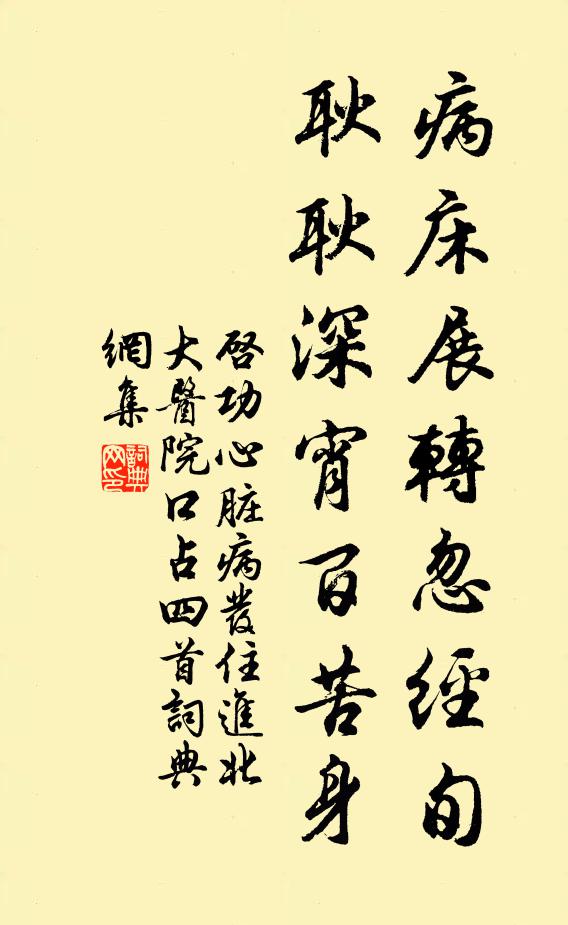 病床展轉忽經旬
耿耿深宵百苦身
啓功心脏病發住進北
大醫院口占四首詞典
網集
詞典
网印